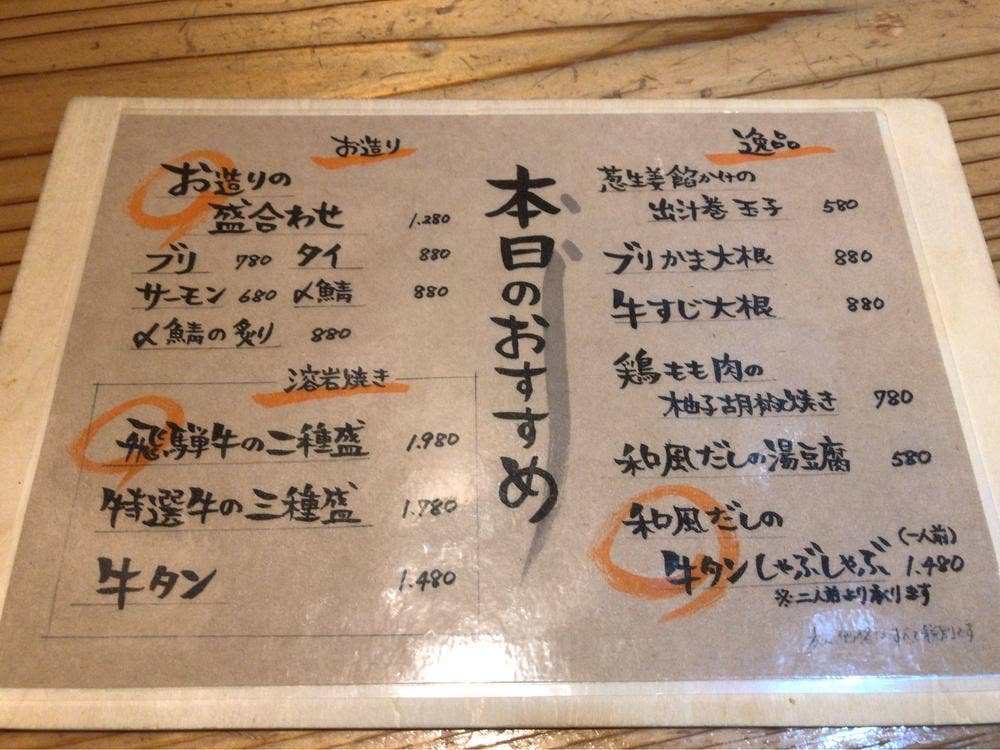 本日のおすすめ
お造り
お造りの
盛合わせ 1.280
ブリ 780 タイ 880
サーモン 680 〆鯖 880
〆鯖の炙り 880
溶岩焼き
飛騨牛の二種盛 1.980
特選牛の三種盛 1.780
牛タン 1.480
逸品
葱生姜餡かけの
出汁巻玉子 580
ブリかま大根 880
牛すじ大根 880
鶏もも肉の
柚子胡椒焼き 780
和風だしの湯豆腐 580
和風だしの (一人前)
牛タンしゃぶしゃぶ 1.480
※二人前より承ります